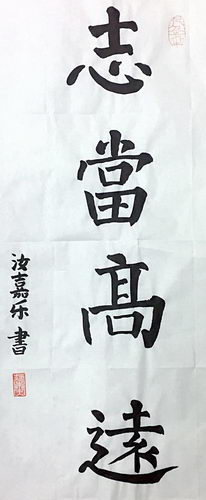 志當高遠
汝嘉乐書